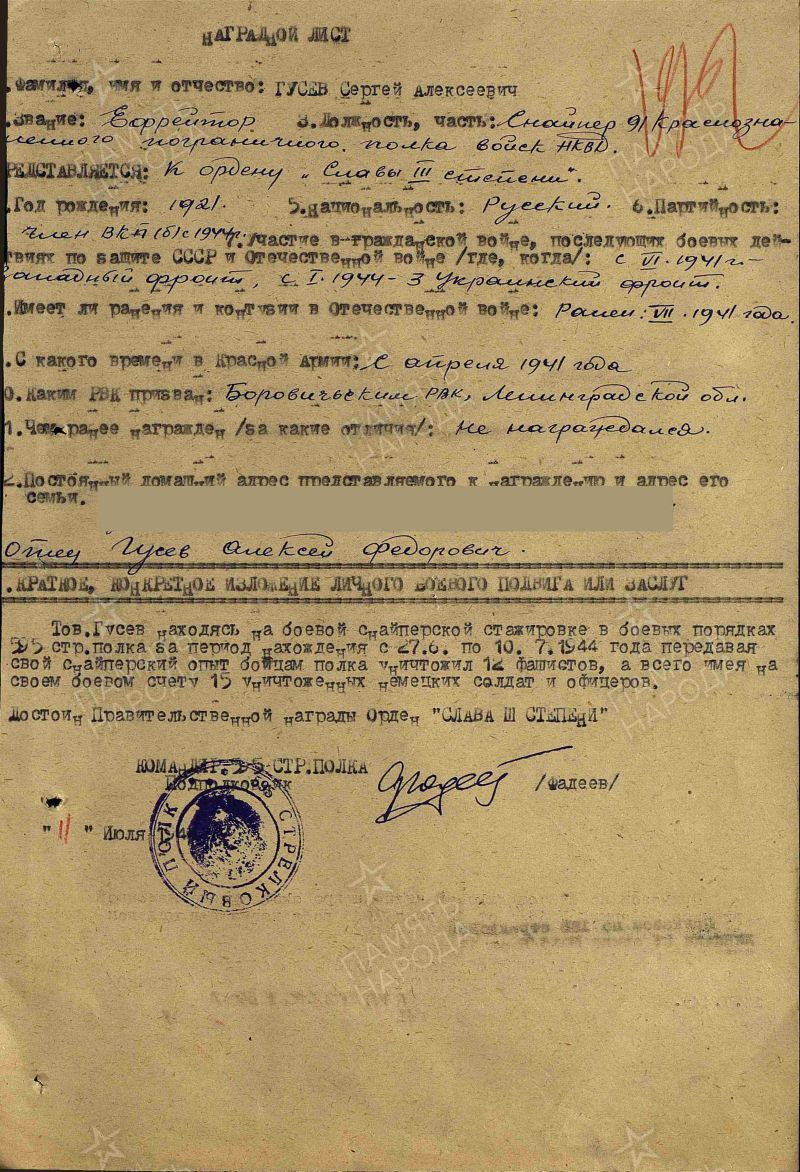 НАГРАДНОЙ ЛИСТ
.Фамилия, имя и отчество: ГУСЕВ Сергей Алексеевич
.Звание: Ефрейтор 3.Должность, часть: Снайпер 91 Краснозна-
менного пограничного полка войск НКВД.
РЕДСТАВЛЯЕТСЯ: К ордену „Славы III степени".
.Год рождения: 1921. 5.Национальность: Русский. 6.Партийность:
член ВКП(б) с 1944г. 7.Участие в гражданской войне, последующих боевых дей-
твиях по защите СССР и Отечественной войне /где, когда/: с VI.1941 г.-
ападный фронт, с I.1944-3 Украинский фронт.
.Имеет ли ранения и контузии в Отечественной войне: Ранен: VII.1941 года.
.С какого времени в Красной Армии: С апреля 1941 года
0.Каким РВК призван: Боровичьским РВК, Ленинградской обл.
1.Чем ранее награжден /за какие отличия/: Не награждался.
2.Постоянный домашний адрес представляемого к награждению и адрес его
семьи.
Отец Гусев Алексей Федорович.
.КРАТКОЕ, КОНКРЕТНОЕ ИЗЛОЖЕНИЕ ЛИЧНОГО БОЕВОГО ПОДВИГА ИЛИ ЗАСЛУГ
Тов.Гусев находясь на боевой снайперской стажировке в боевых порядках
595 стр.полка за период нахождения с 27.6. по 10.7.1944 года передавая
свой снайперский опыт бойцам полка уничтожил 12 фашистов, а всего имея на
своем боевом счету 15 уничтоженных немецких солдат и офицеров.
Достоин Правительственной награды Орден "СЛАВА Ш СТЕПЕНИ"
КОМАНДИР 595 СТР.ПОЛКА
Подполковник /Фадеев/
"11" Июля 1944
СТРЕЛКОВЫЙ ПОЛК
ПАМЯТЬ НАРОДА